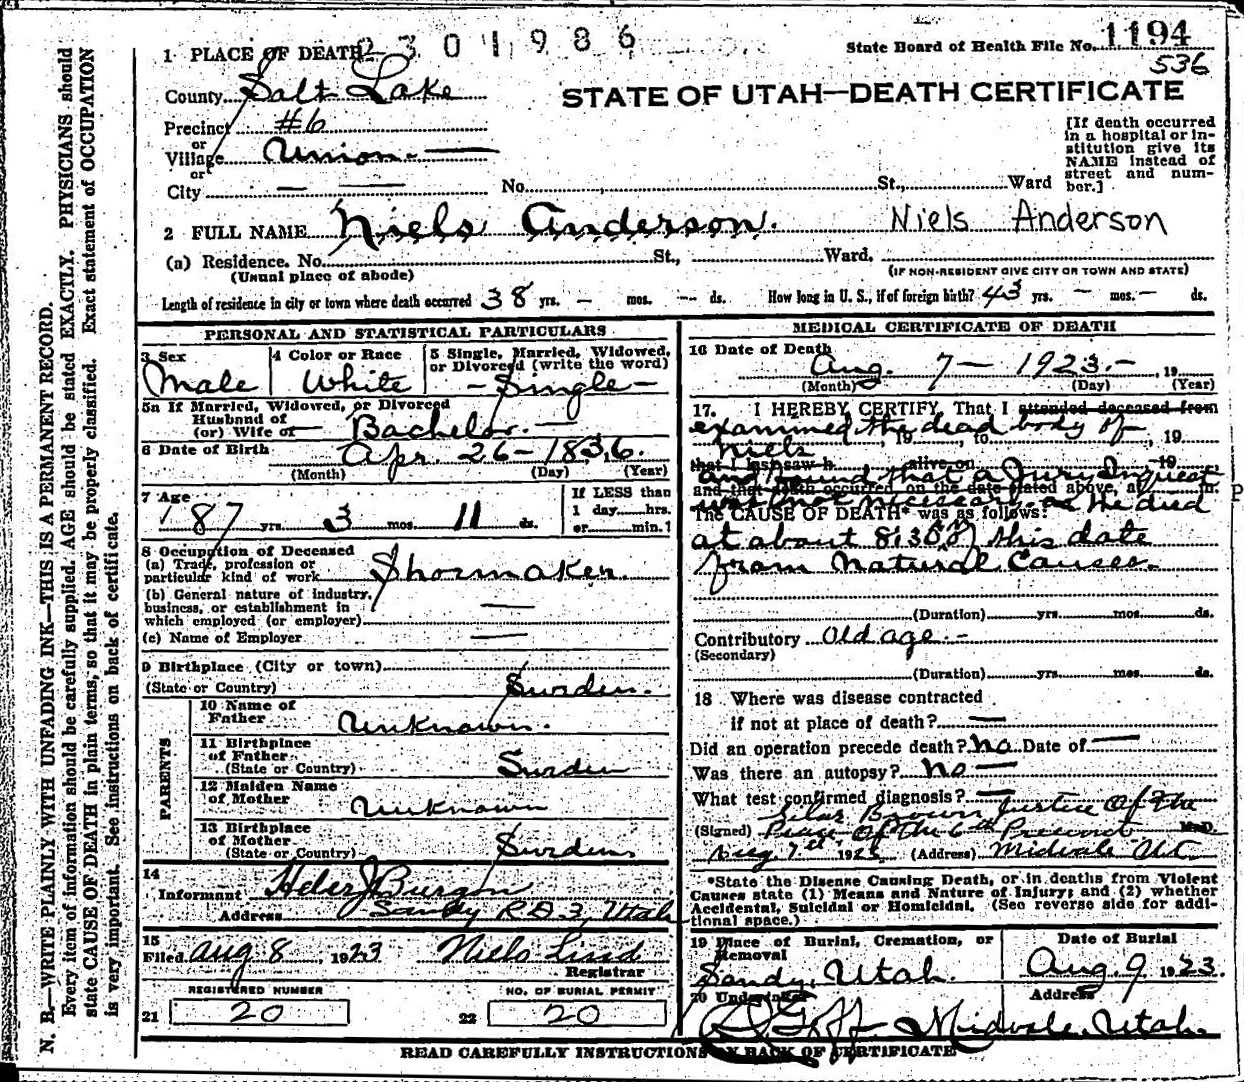 2301986
State Board of Health File No. 1194
536
1 PLACE OF DEATH
County Salt Lake
STATE OF UTAH—DEATH CERTIFICATE
Precinct #6
or
Village Union
or
City — —
No. St., Ward
[If death occurred
in a hospital or in-
stitution give its
NAME instead of
street and num-
ber.]
2 FULL NAME Niels Anderson. Niels Anderson
(a) Residence. No. St., Ward,
(Usual place of abode) (IF NON-RESIDENT GIVE CITY OR TOWN AND STATE)
Length of residence in city or town where death occurred 38 yrs. — mos. — ds. How long in U. S., if of foreign birth? 43 yrs. — mos. — ds.
PERSONAL AND STATISTICAL PARTICULARS
3 Sex
Male
4 Color or Race
White
5 Single, Married, Widowed,
or Divorced (write the word)
—Single—
5a If Married, Widowed, or Divorced
Husband of
(or) Wife of — Bachelor. —
6 Date of Birth Apr. 26—1836.
(Month) (Day) (Year)
7 Age
87 yrs. 3 mos. 11 ds.
If LESS than
1 day....hrs.
or....min.
8 Occupation of Deceased
(a) Trade, profession or
particular kind of work Shoemaker.
(b) General nature of industry,
business, or establishment in
which employed (or employer) —
(c) Name of Employer —
9 Birthplace (City or town)
(State or Country) Sweden.
PARENTS
10 Name of
Father Unknown.
11 Birthplace
of Father
(State or Country) Sweden
12 Maiden Name
of Mother Unknown
13 Birthplace
of Mother
(State or Country) Sweden
14
Informant Heber J Burgon
Address Sandy R D 3, Utah
15
Filed Aug 8, 1923 Niels Lind
Registrar
REGISTERED NUMBER NO. OF BURIAL PERMIT
21 20 22 20
MEDICAL CERTIFICATE OF DEATH
16 Date of Death
Aug. 7— 1923.— , 19
(Month) (Day) (Year)
17. I HEREBY CERTIFY, That I attended deceased from
examined the dead body of
, 19 , to , 19
Niels
that I last saw h alive on 19
and found that a Jury Inquest
and that death occurred on the date stated above, at m. P
was not necessary as he died
The CAUSE OF DEATH* was as follows:
at about 8:30 this date
from Natural Causes.
(Duration) yrs. mos. ds.
Contributory Old age.—
(Secondary)
(Duration) yrs. mos. ds.
18 Where was disease contracted
if not at place of death? —
Did an operation precede death? No. Date of —
Was there an autopsy? No —
What test confirmed diagnosis? —
Silas Brown Justice Of The
(Signed) Peace Of The 6th Precinct M.D.
Aug 7th 1923 (Address) Midvale Ut
*State the Disease Causing Death, or in deaths from Violent
Causes state (1) Means and Nature of Injury; and (2) whether
Accidental, Suicidal or Homicidal. (See reverse side for addi-
tional space.)
19 Place of Burial, Cremation, or
Removal
Sandy, Utah.
Date of Burial
Aug. 9 1923.
20 Undertaker Address
Goff Midvale, Utah.
READ CAREFULLY INSTRUCTIONS ON BACK OF CERTIFICATE
N. B.—WRITE PLAINLY WITH UNFADING INK—THIS IS A PERMANENT RECORD.
Every item of information should be carefully supplied. AGE should be stated EXACTLY. PHYSICIANS should
state CAUSE OF DEATH in plain terms, so that it may be properly classified. Exact statement of OCCUPATION
is very important. See instructions on back of certificate.